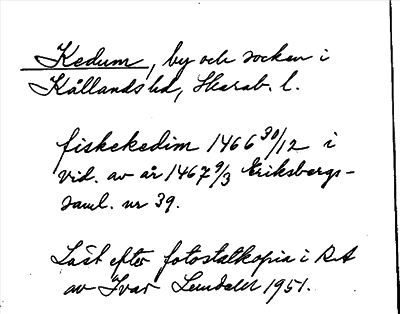 Kedum, by och socken i
Kållands hd, Skarab. l.
fiskekedim 1466 30/12 i
vid. av år 1467 9/3 Eriksbergs-
saml. nr 39.
Läst efter fotostatkopia i RA
av Ivar Lundahl 1951.